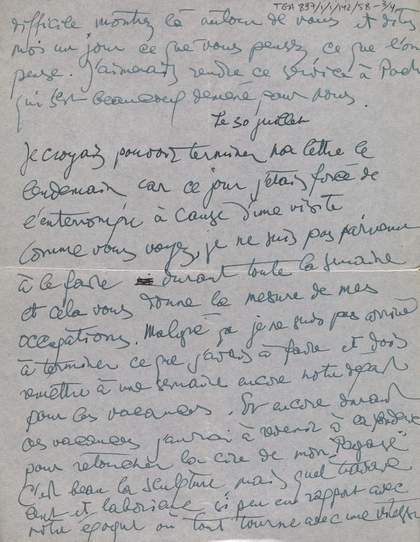 TGA 897/1/1/142/58-3/4
difficile montrez là autour de vous et dites
moi un jour ce que vous pensez ce que l'on
pense. J'aimerais rendre ce service à
qui s'est beaucoup démené pour nous.
Le 30 juillet
Je croyais pouvoir terminer ma lettre le
lendemain car ce jour j'étais forcé de
l'interrompre à cause d'une visite
Comme vous voyez je ne suis pas parvenue
à le faire durant toute la semaine
et cela vous donne la mesure de mes
occupations. Malgré ça je ne suis pas arrivé
à terminer ce que j'avais à faire et dois
remettre à une semaine encore notre départ
pour les vacances. Et encore durant
ces vacances j'aurai à revenir à
pour retoucher la cire de mon "Paysage"
C'est beau la sculpture mais quel travail
lent et laborieux si peu en rapport avec
notre époque où tout tourne avec une vitesse